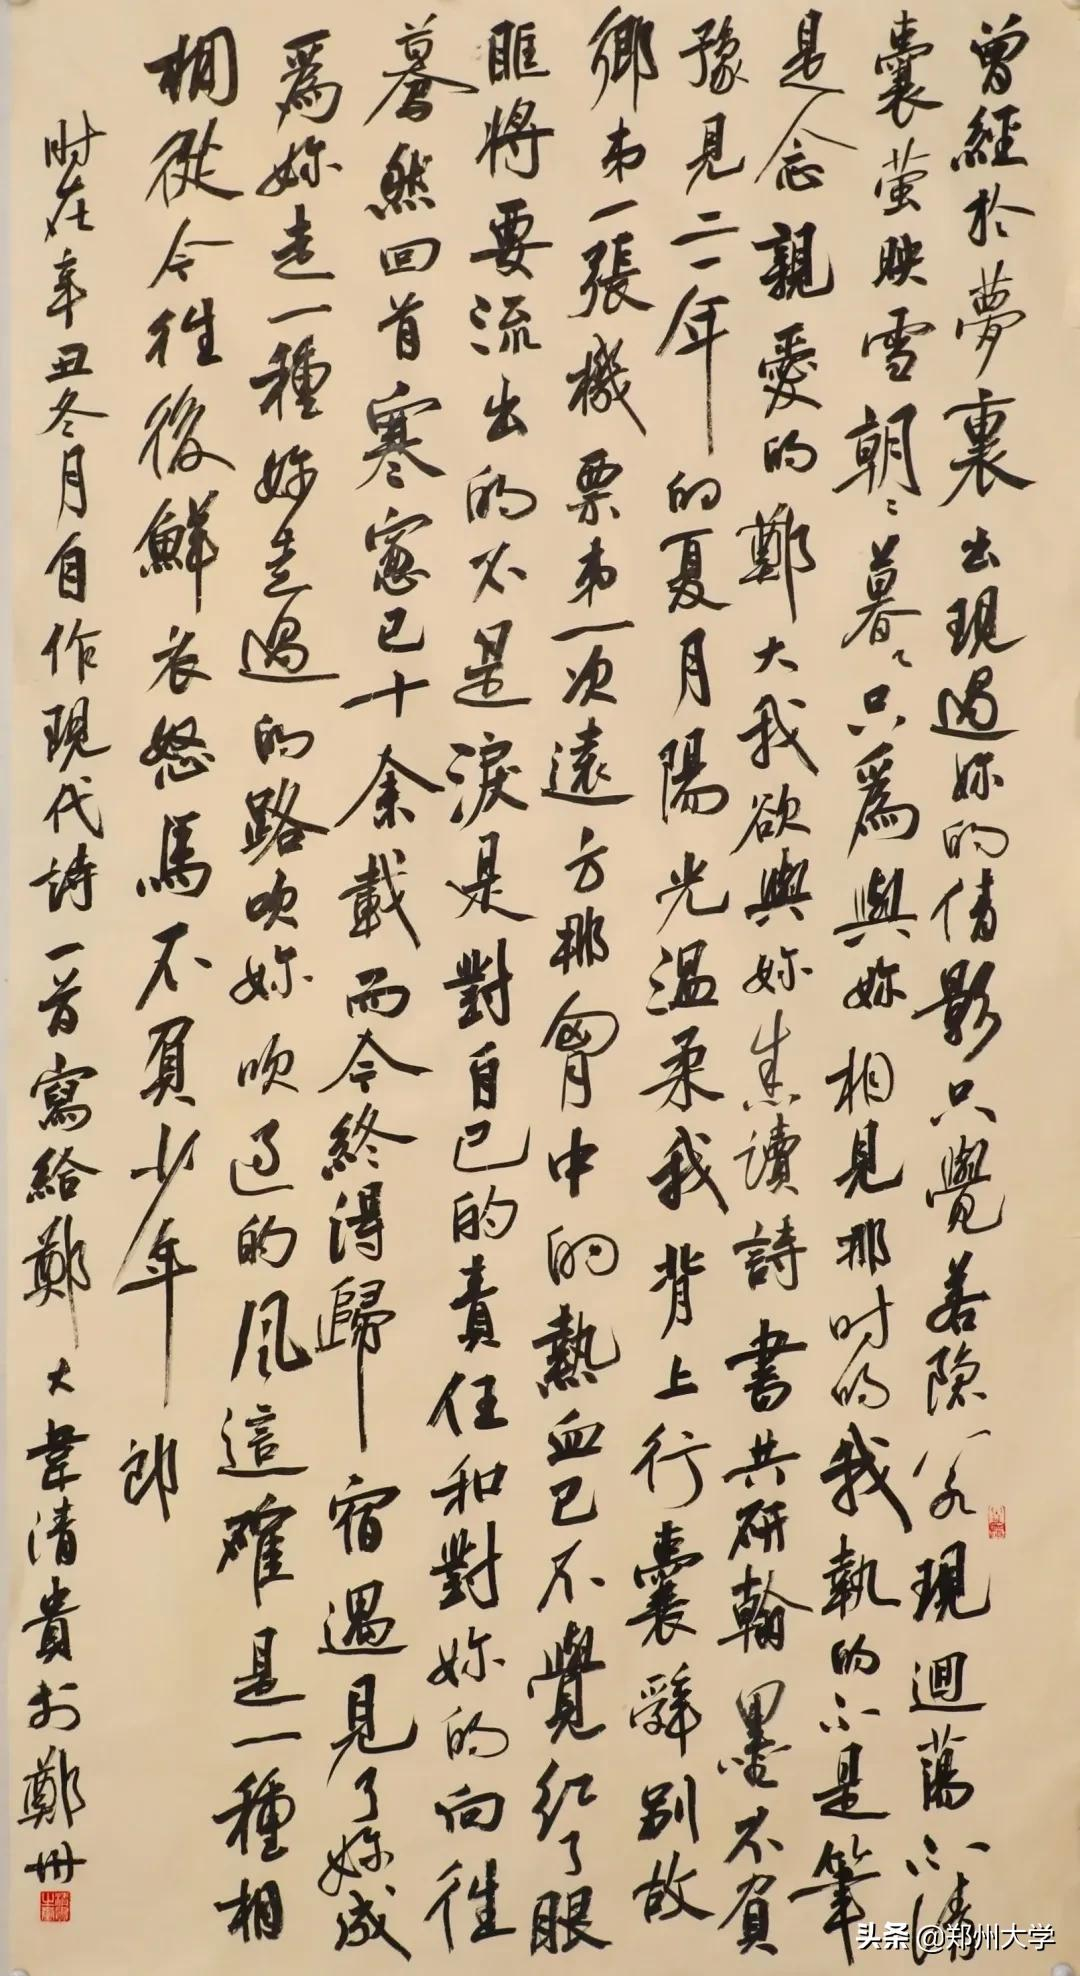 曾經於夢裏出現過妳的倩影只覺若隱若現迴蕩不清
囊萤映雪朝朝暮暮只爲與妳相見那时的我執的不是筆
是念親愛的鄭大我欲與妳焦讀詩書共研翰墨不負
豫見二一年的夏月陽光温柔我背上行囊辭别故
鄉弟一張機票弟一次遠方那胷中的熱血已不覺红了眼
眶將要流出的不是淚是對自己的責任和對妳的向往
驀然回首寒窓已十余載而今終得歸宿遇見了妳成
爲妳走一種妳走過的路吹妳吹过的风這確是一種相
相從今往後鮮衣怒馬不負少年郎
时在辛丑冬月自作現代詩一首寫給鄭大韋清貴於鄭州
头条@郑州大学